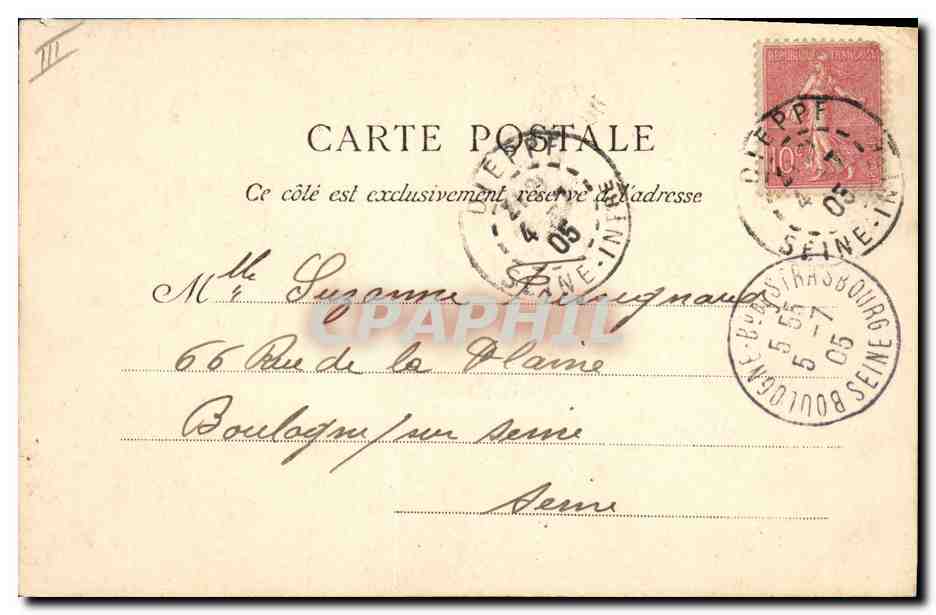 III
REPUBLIQUE FRANÇAISE
10c
CARTE POSTALE
Ce côté est exclusivement réservé à l'adresse
DIEPPE
4 -7
05
SEINE-INF
DIEPPE
4 -7
05
SEINE-INF
Mlle Suzanne
CPAPHIL
66 Rue de la Plaine
Boulogne/sur Seine
Seine
BOULOGNE-Bd STRASBOURG
5 55
5 -7
05
SEINE